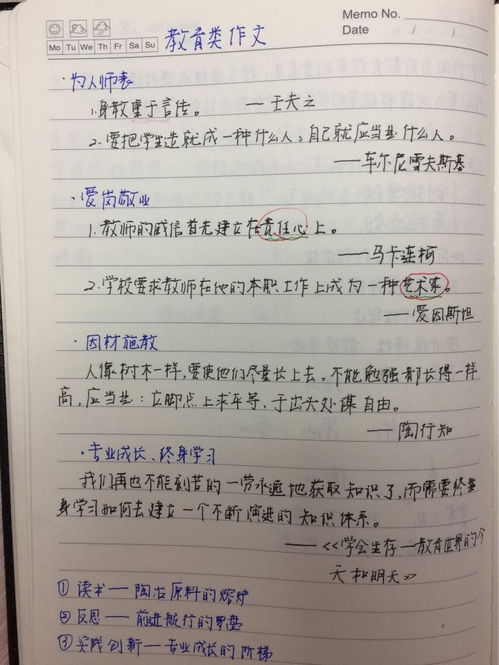 Memo No.
Mo Tu We Th Fr Sa Su
Date / /
教育类作文
·为人师表
1.身教重于言传。 ——王夫之
2.要把学生造就成一种什么人,自己就应当是什么人。
——车尔尼雪夫斯基
·爱岗敬业
1.教师的威信首先建立在责任心上。
——马卡连柯
2.学校要求教师在他的本职工作上成为一种艺术家。
——爱因斯坦
·因材施教
人像树木一样,要使他们尽量长上去,不能勉强都长得一样
高,应当是:立脚点上求平等,于出头处谋自由。
——陶行知
·专业成长、终身学习
我们再也不能刻苦的一劳永逸地获取知识了,而需要终
身学习如何去建立一个不断演进的知识体系。
——《学会生存—教育世界的今
天和明天》
①读书——陶冶原料的熔炉
②反思——前进航行的罗盘
③实践创新——专业成长的阶梯